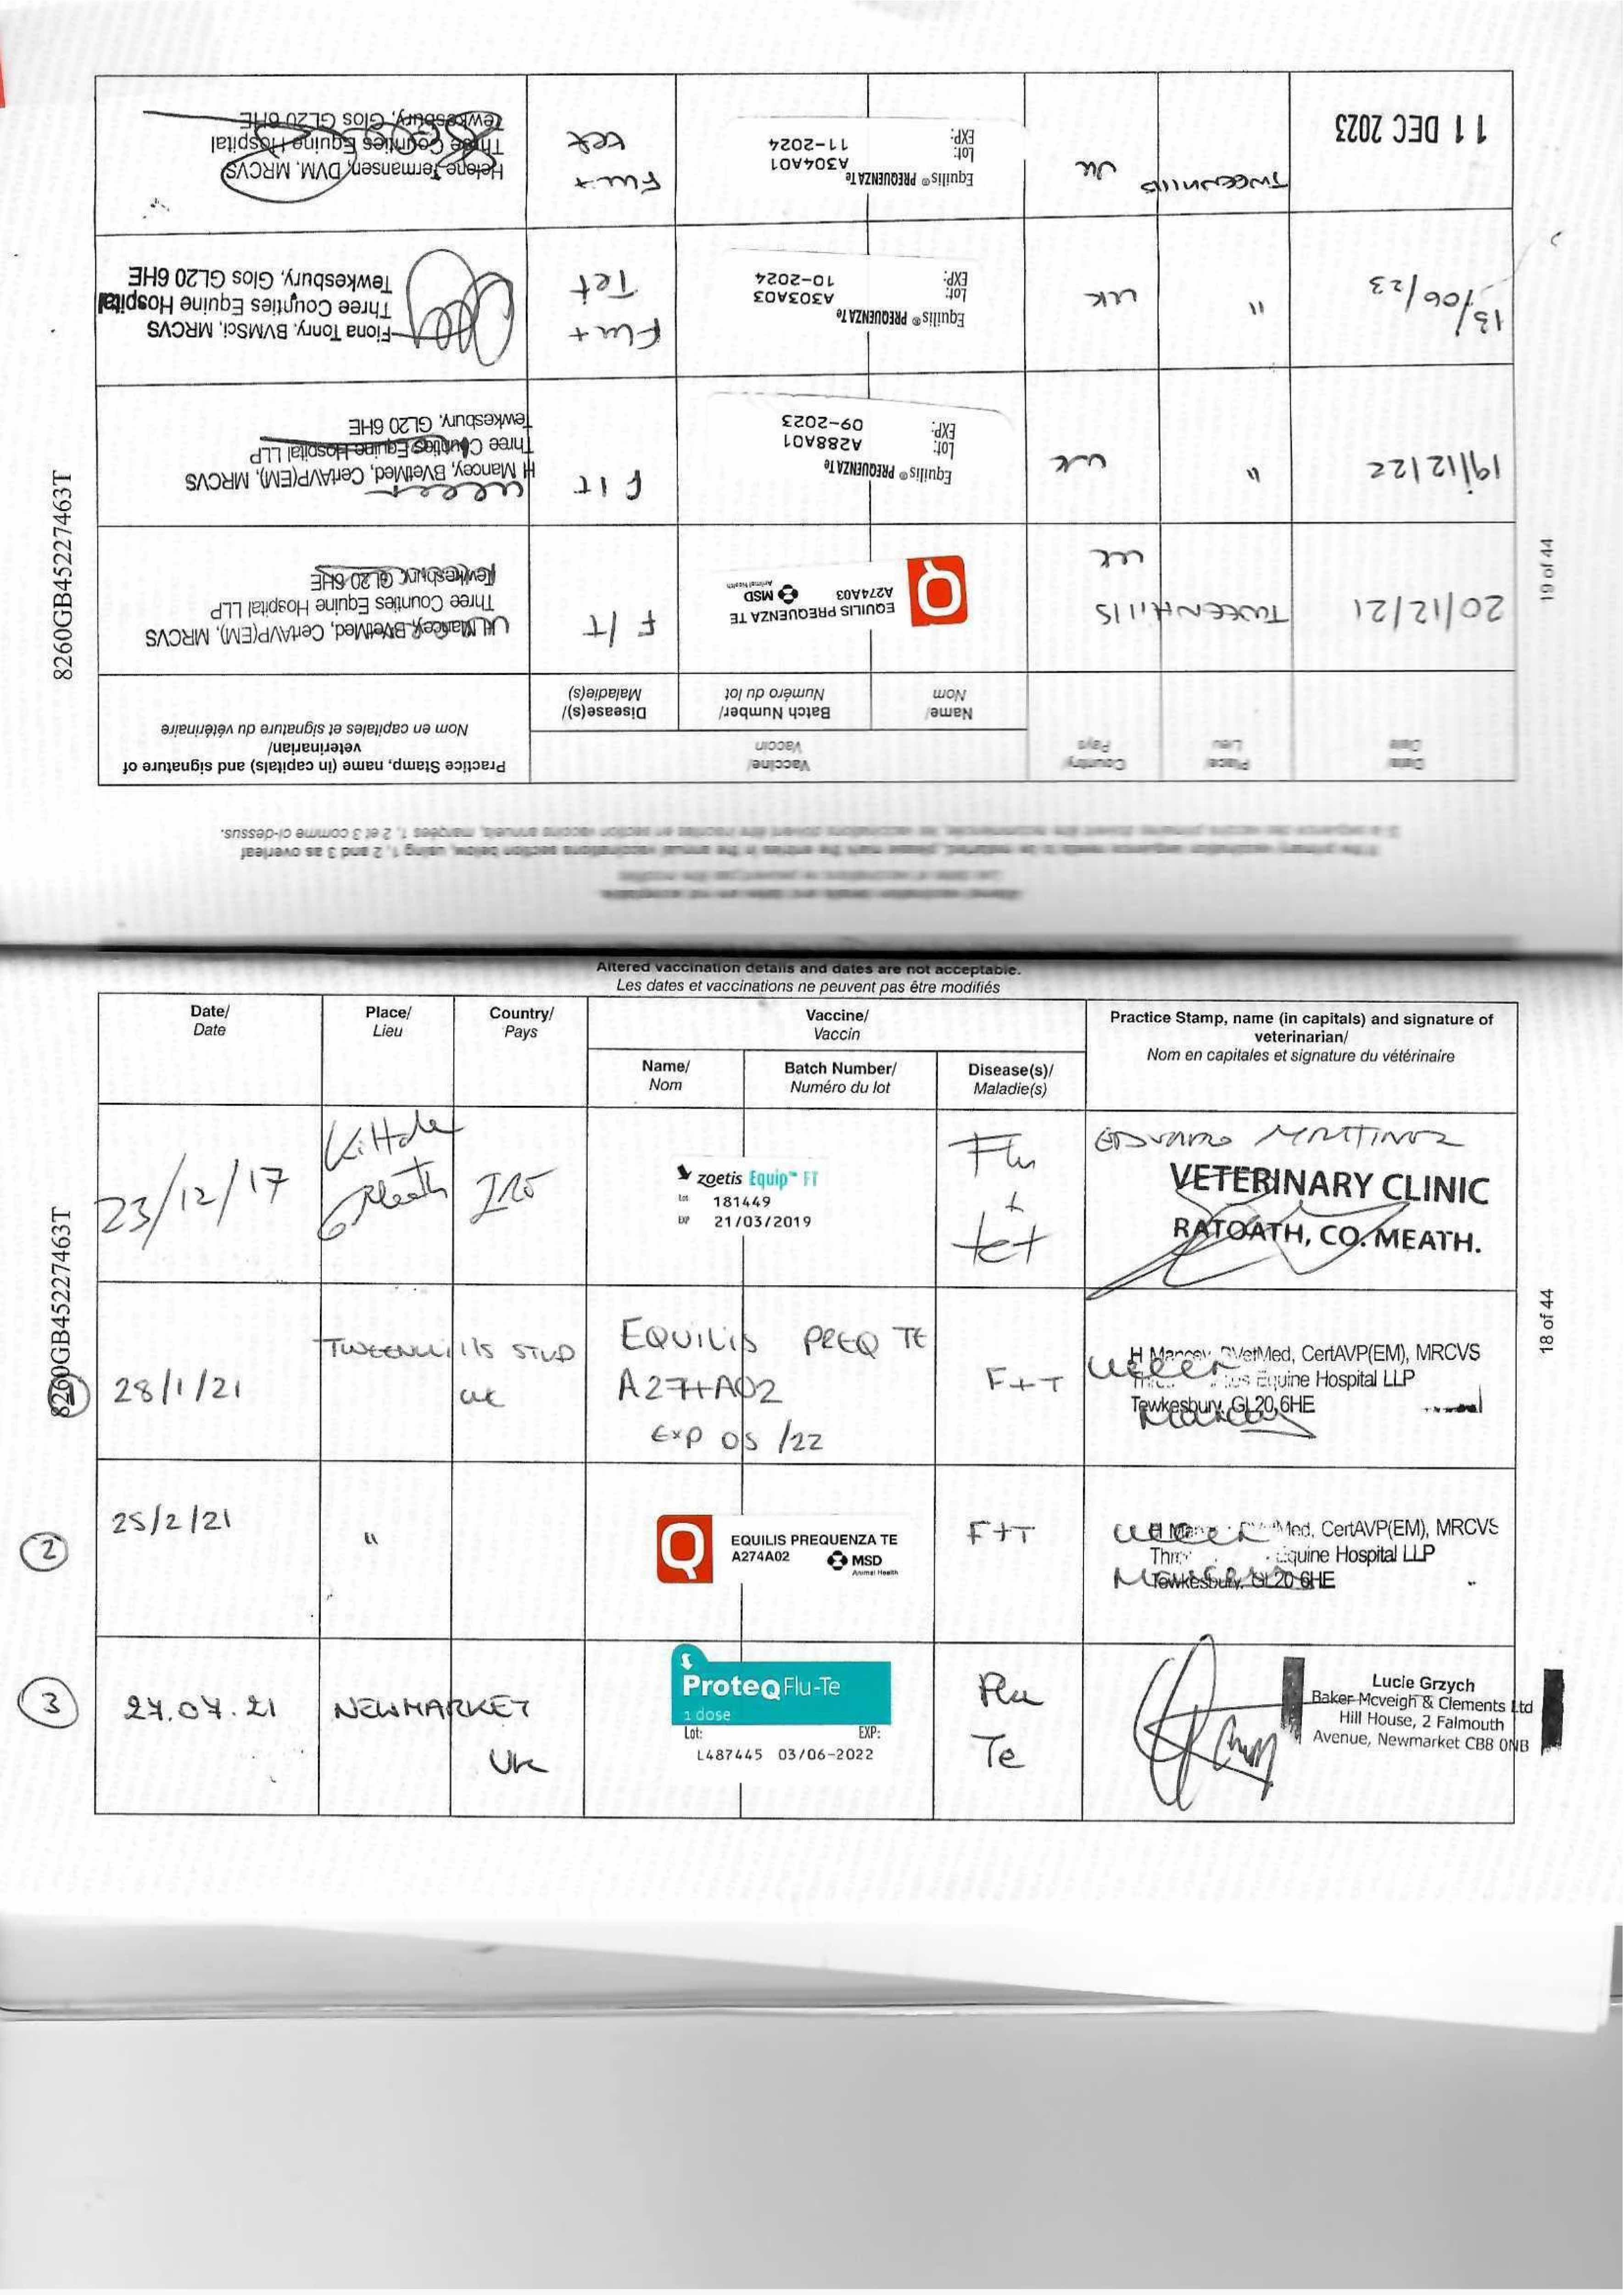 Altered vaccination details and dates are not acceptable.
Les dates et vaccinations ne peuvent pas être modifiés
Date/
Date
Place/
Lieu
Country/
Pays
Vaccine/
Vaccin
Name/
Nom
Batch Number/
Numéro du lot
Disease(s)/
Maladie(s)
Practice Stamp, name (in capitals) and signature of
veterinarian/
Nom en capitales et signature du vétérinaire
23/12/17
Meath
zoetis Equip™ FT
Lot 181449
EXP 21/03/2019
Flu
+
tet
VETERINARY CLINIC
RATOATH, CO. MEATH.
28/1/21
TWEENHILLS STUD
UK
EQUILIS PREQ TE
A274A02
EXP 05/22
F+T
H Mancey, BVetMed, CertAVP(EM), MRCVS
Equine Hospital LLP
Tewkesbury, GL20 6HE
2
25/2/21
"
EQUILIS PREQUENZA TE
A274A02
MSD
Animal Health
F+T
CertAVP(EM), MRCVS
Equine Hospital LLP
Tewkesbury, GL20 6HE
3
27.07.21
NEWMARKET
UK
ProteqFlu-Te
1 dose
Lot: EXP:
L487445 03/06-2022
Flu
Te
Lucie Grzych
Baker Mcveigh & Clements Ltd
Hill House, 2 Falmouth
Avenue, Newmarket CB8 0NB
8260GB45227463T
18 of 44
Altered vaccination details and dates are not acceptable
Les dates et vaccinations ne peuvent pas être modifiés
If the primary vaccination sequence needs to be restarted, please mark the entries in the annual vaccinations section below, using 1, 2 and 3 as overleaf
Si la séquence des vaccins primaires doivent être recommencée, les vaccinations doivent être inscrites en section vaccins annuels, marquées 1, 2 et 3 comme ci-dessus.
Date/
Date
Place/
Lieu
Country/
Pays
Vaccine/
Vaccin
Name/
Nom
Batch Number/
Numéro du lot
Disease(s)/
Maladie(s)
Practice Stamp, name (in capitals) and signature of
veterinarian/
Nom en capitales et signature du vétérinaire
20/12/21
TWEENHILLS
UK
EQUILIS PREQUENZA TE
A274A03
MSD
Animal Health
F/T
H Mancey, BVetMed, CertAVP(EM), MRCVS
Three Counties Equine Hospital LLP
Tewkesbury, GL20 6HE
19/12/22
"
UK
Equilis® PREQUENZA Te
Lot: A288A01
EXP: 09-2023
F/T
H Mancey, BVetMed, CertAVP(EM), MRCVS
Three Counties Equine Hospital LLP
Tewkesbury, GL20 6HE
13/06/23
"
UK
Equilis® PREQUENZA Te
Lot: A303A03
EXP: 10-2024
Flu+
Tet
Fiona Tonry, BVMSci, MRCVS
Three Counties Equine Hospital
Tewkesbury, Glos GL20 6HE
11 DEC 2023
TWEENHILLS
UK
Equilis® PREQUENZA Te
Lot: A304A01
EXP: 11-2024
Flu+
tet
Helene Termansen, DVM, MRCVS
Three Counties Equine Hospital
Tewkesbury, Glos GL20 6HE
8260GB45227463T
19 of 44